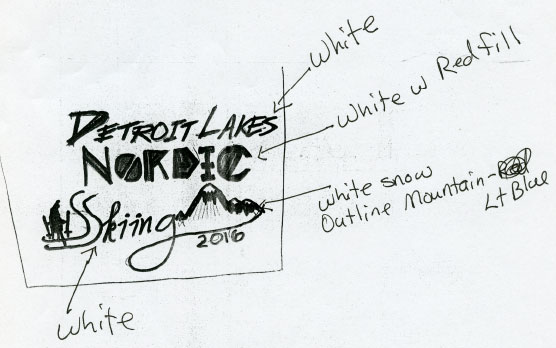 White
White w Red fill
DETROIT LAKES
NORDIC
Skiing
2016
white snow
Outline Mountain-
Lt Blue
white